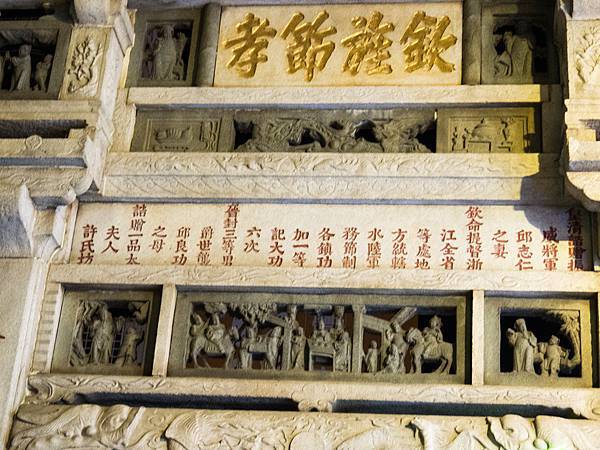 欽旌節孝
皇清誥贈振
威將軍
邱志仁
之妻
欽命提督浙
江全省
等處地
方統轄
水陸軍
務節制
各鎮功
加一等
記大功
六次
晉封三等男
爵世襲
邱良功
之母
誥贈一品太
夫人
許氏坊